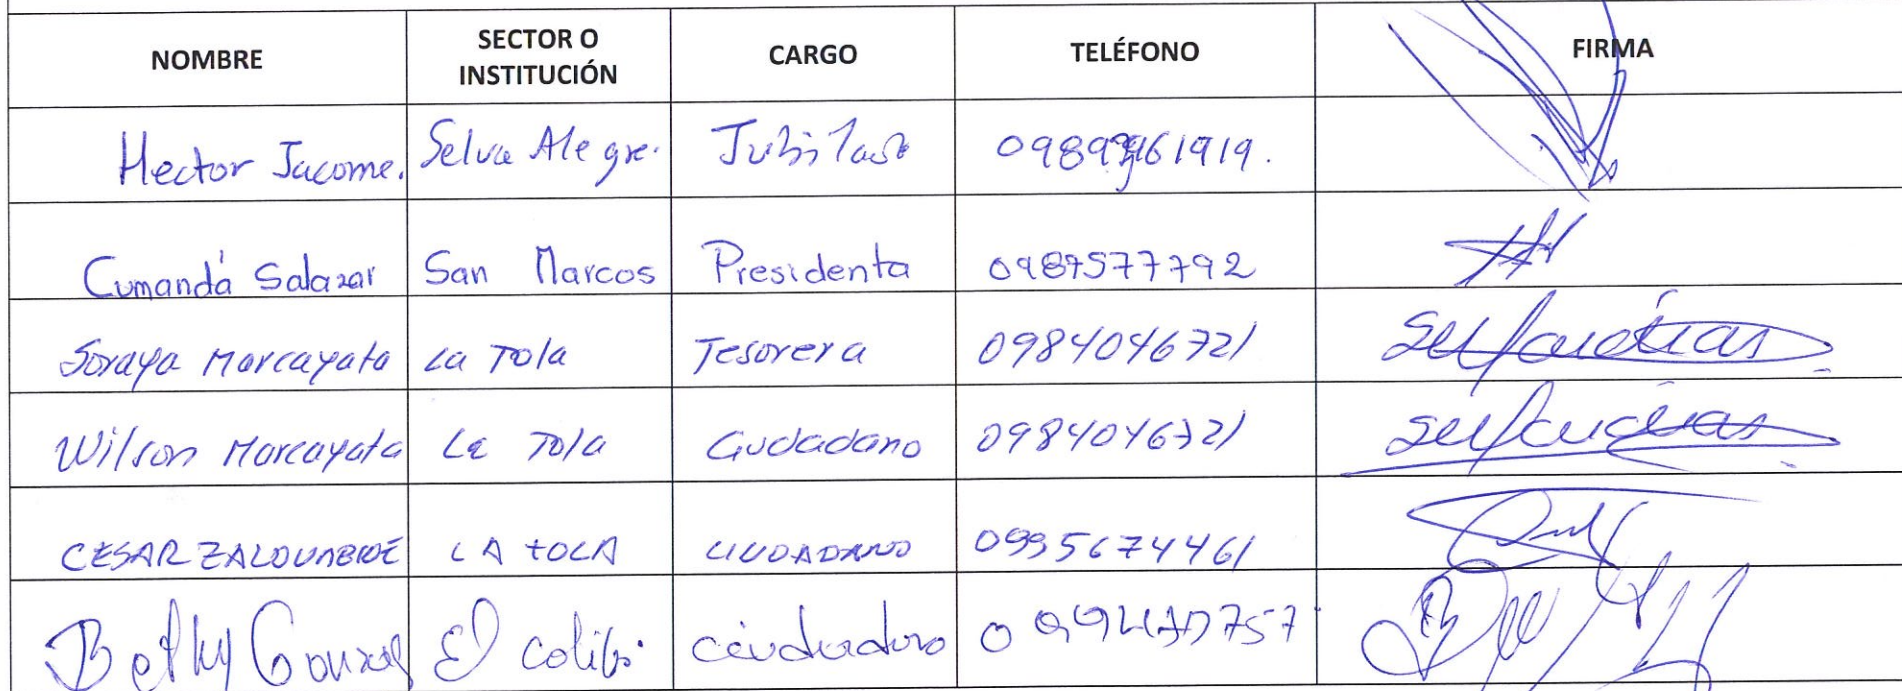 NOMBRE SECTOR O INSTITUCIÓN CARGO TELÉFONO FIRMA
Hector Jacome. Selva Alegre. Jubilado
Cumandá Salazar San Marcos Presidenta 0987577792
Soraya Marcayata La Tola Tesorera 0984046721
Wilson Marcayata La Tola Ciudadano 0984046721
CESAR ZALDUMBIDE LA TOLA CIUDADANO 0995674461
Bethy El colibrí ciudadano